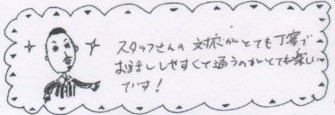 スタッフさんの対応がとても丁寧で
お話ししやすくて通うのがとても楽しい
です!